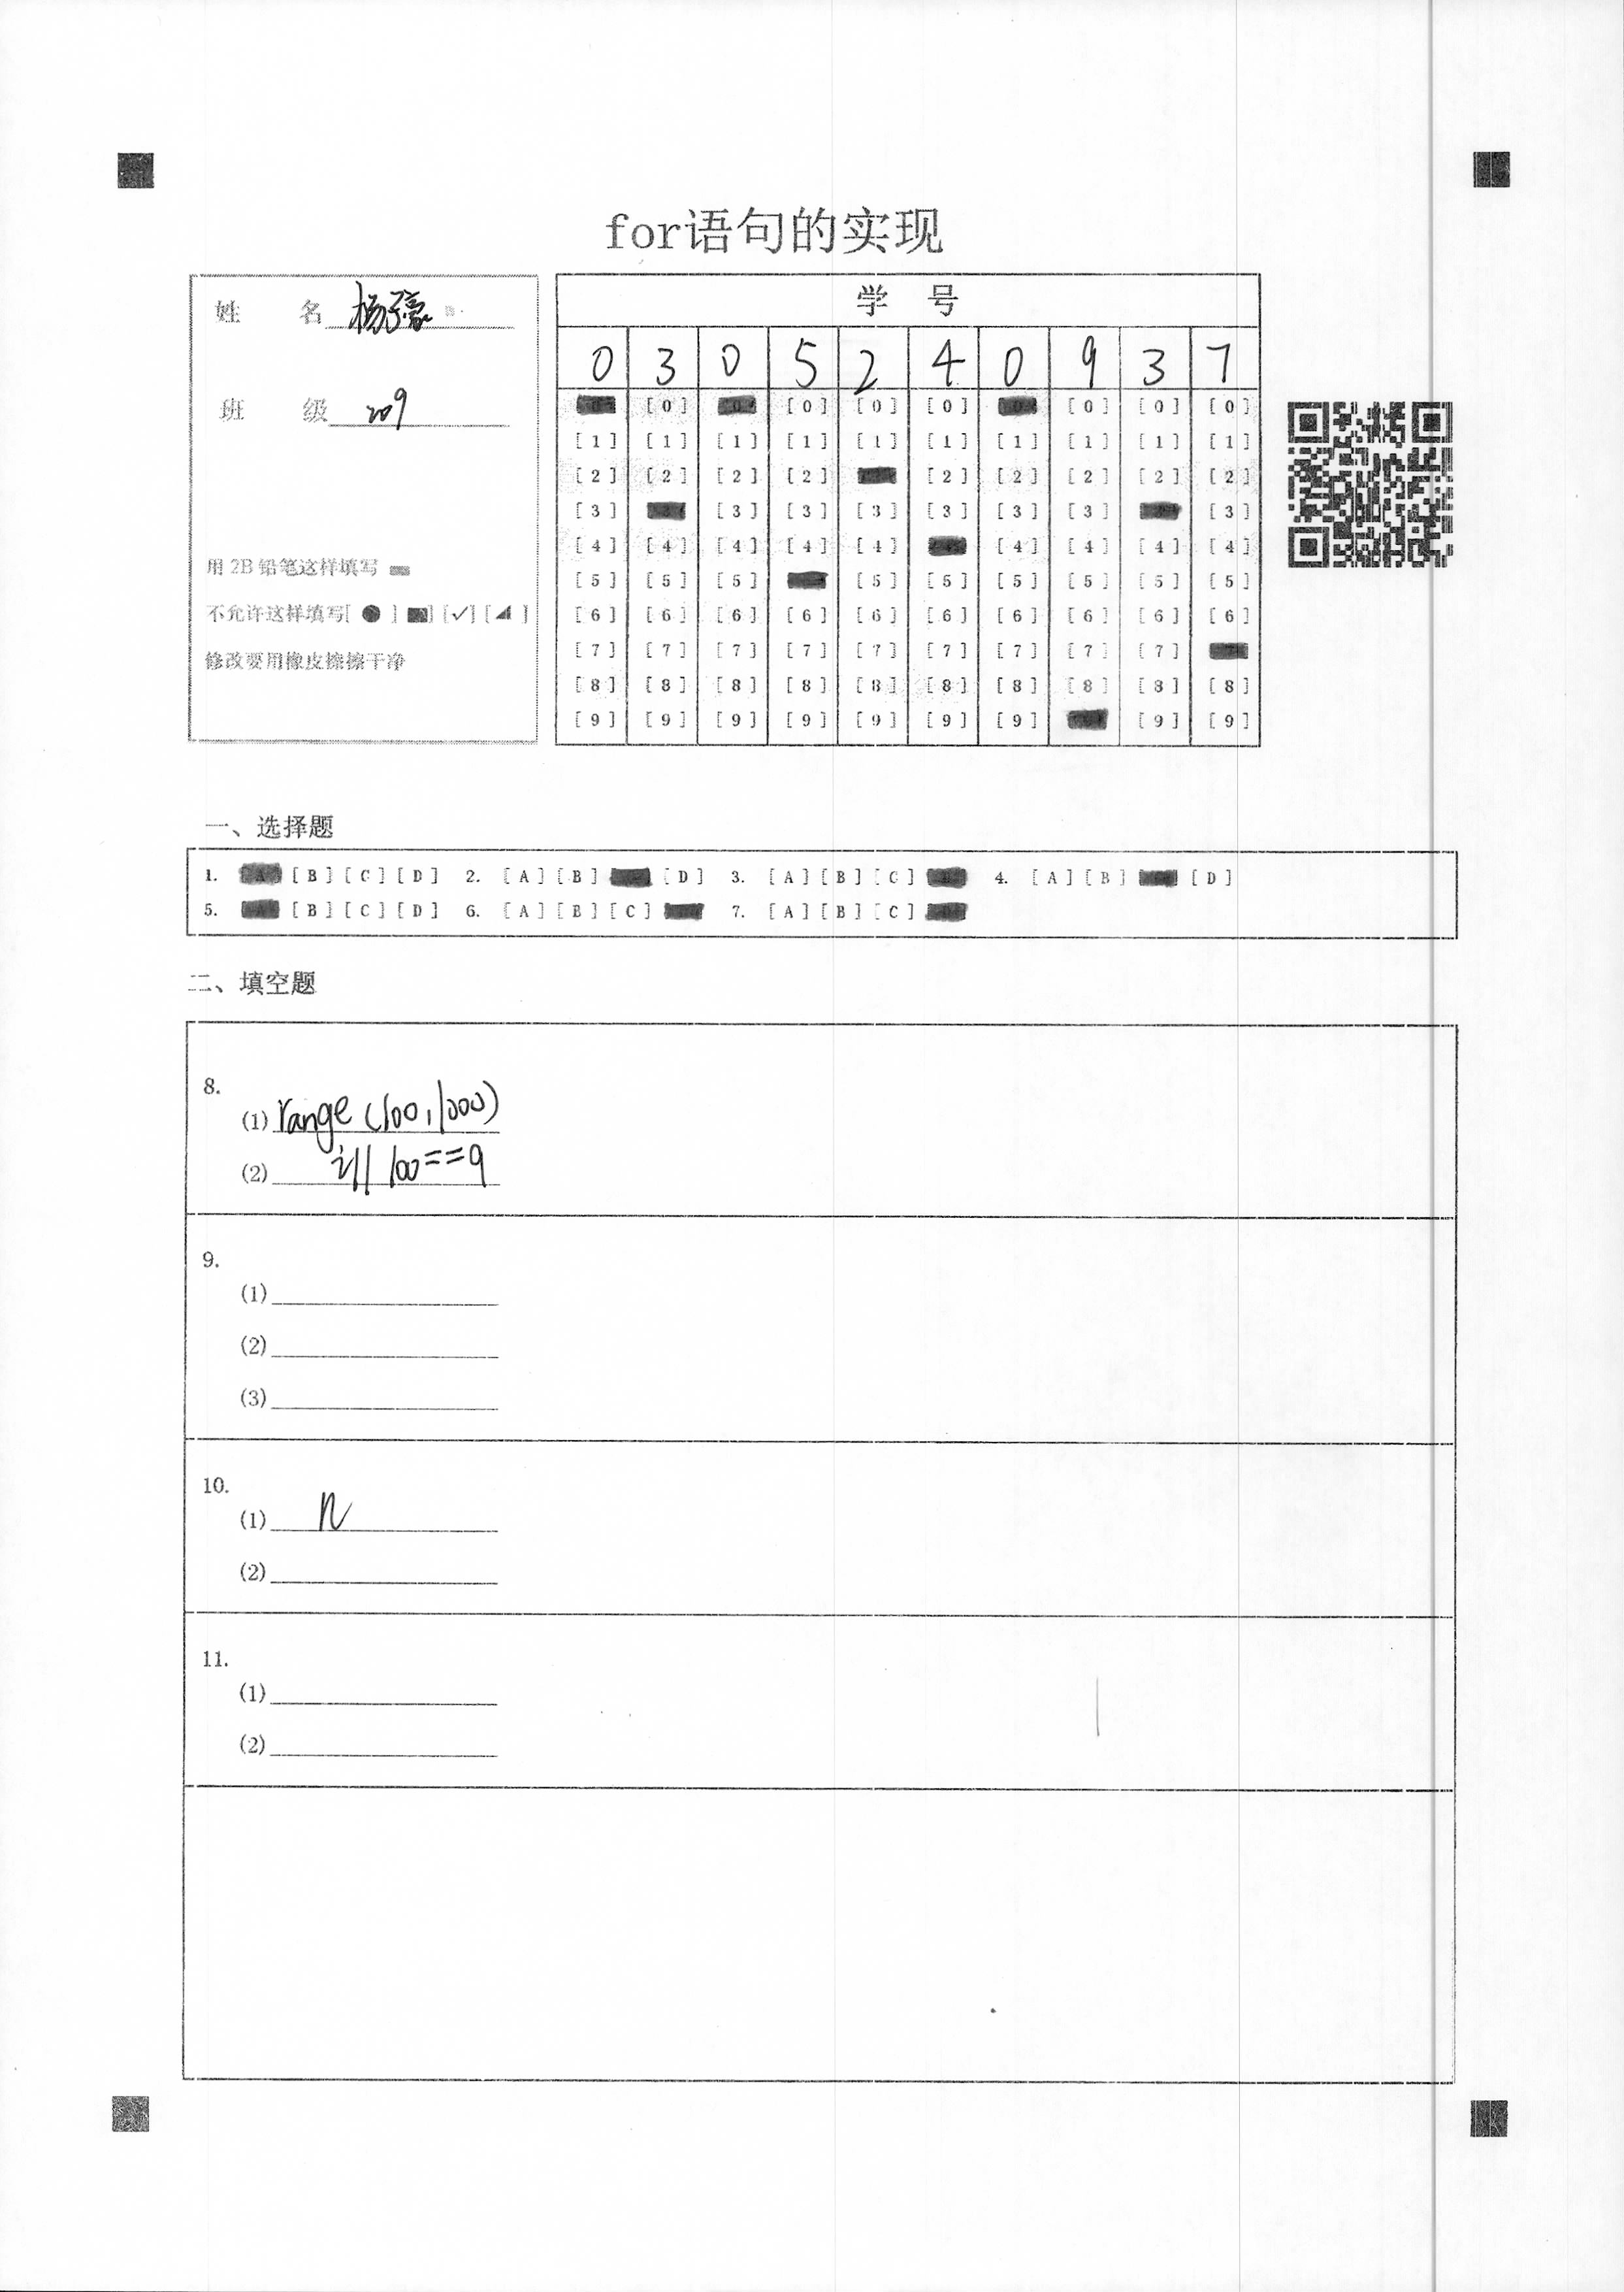 for语句的实现
姓 名 杨子豪
班 级 209
用 2B 铅笔这样填写
不允许这样填写[ ● ] [■] [✓] [◢ ]
修改要用橡皮擦擦干净
学 号
0 3 0 5 2 4 0 9 3 7
[0] [0] [0] [0] [0] [0] [0]
[1] [1] [1] [1] [1] [1] [1] [1] [1] [1]
[2] [2] [2] [2] [2] [2] [2] [2] [2]
[3] [3] [3] [3] [3] [3] [3] [3]
[4] [4] [4] [4] [4] [4] [4] [4] [4]
[5] [5] [5] [5] [5] [5] [5] [5] [5]
[6] [6] [6] [6] [6] [6] [6] [6] [6] [6]
[7] [7] [7] [7] [7] [7] [7] [7] [7]
[8] [8] [8] [8] [8] [8] [8] [8] [8] [8]
[9] [9] [9] [9] [9] [9] [9] [9] [9]
一、选择题
1. [B] [C] [D] 2. [A] [B] [D] 3. [A] [B] [C] 4. [A] [B] [D]
5. [B] [C] [D] 6. [A] [B] [C] 7. [A] [B] [C]
二、填空题
8.
(1) range(100,1000)
(2) i//100==9
9.
(1)
(2)
(3)
10.
(1) n
(2)
11.
(1)
(2)